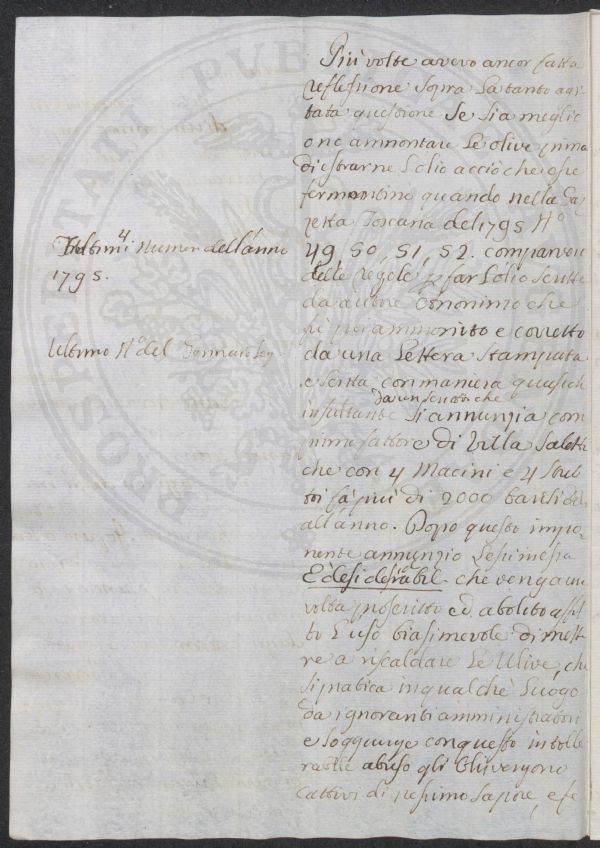 Più volte avevo ancor fatta
reflessione sopra la tanto agi
tata questione se sia meglio
o no ammontare le olive prima
di estrarne l'olio acciò che esse
fermentino quando nella Gaz
zetta Toscana del 1795 No
49, 50, 51, 52. comparvero
delle regole p far l'olio scritte
da autore anonimo che
fu poi ammonito e corretto
da una Lettera stampata
e scritta con maniera quasi ch
da un scritto che
insultante si annunzia com
primo fattore di Villa Saletta
che con 4 Macini e 4 Stret
toi fa più di 2000 barili
all'anno. Dopo questo impo
nente annunzio
E desiderabil che venga una
volta proscritto ed abolito affat
to l'uso biasimevole di mette
re a riscaldare le Ulive, che
si pratica in qualche luogo
da ignoranti amministratori
e soggiunge con questo intolle
rabile abuso gli Oli vengono
cattivi di pessimo sapore, e fe
4
Ultimi numeri dell'anno
1795.
Ultimo No del Gennaio
PROSPERITATI PUBLICAE